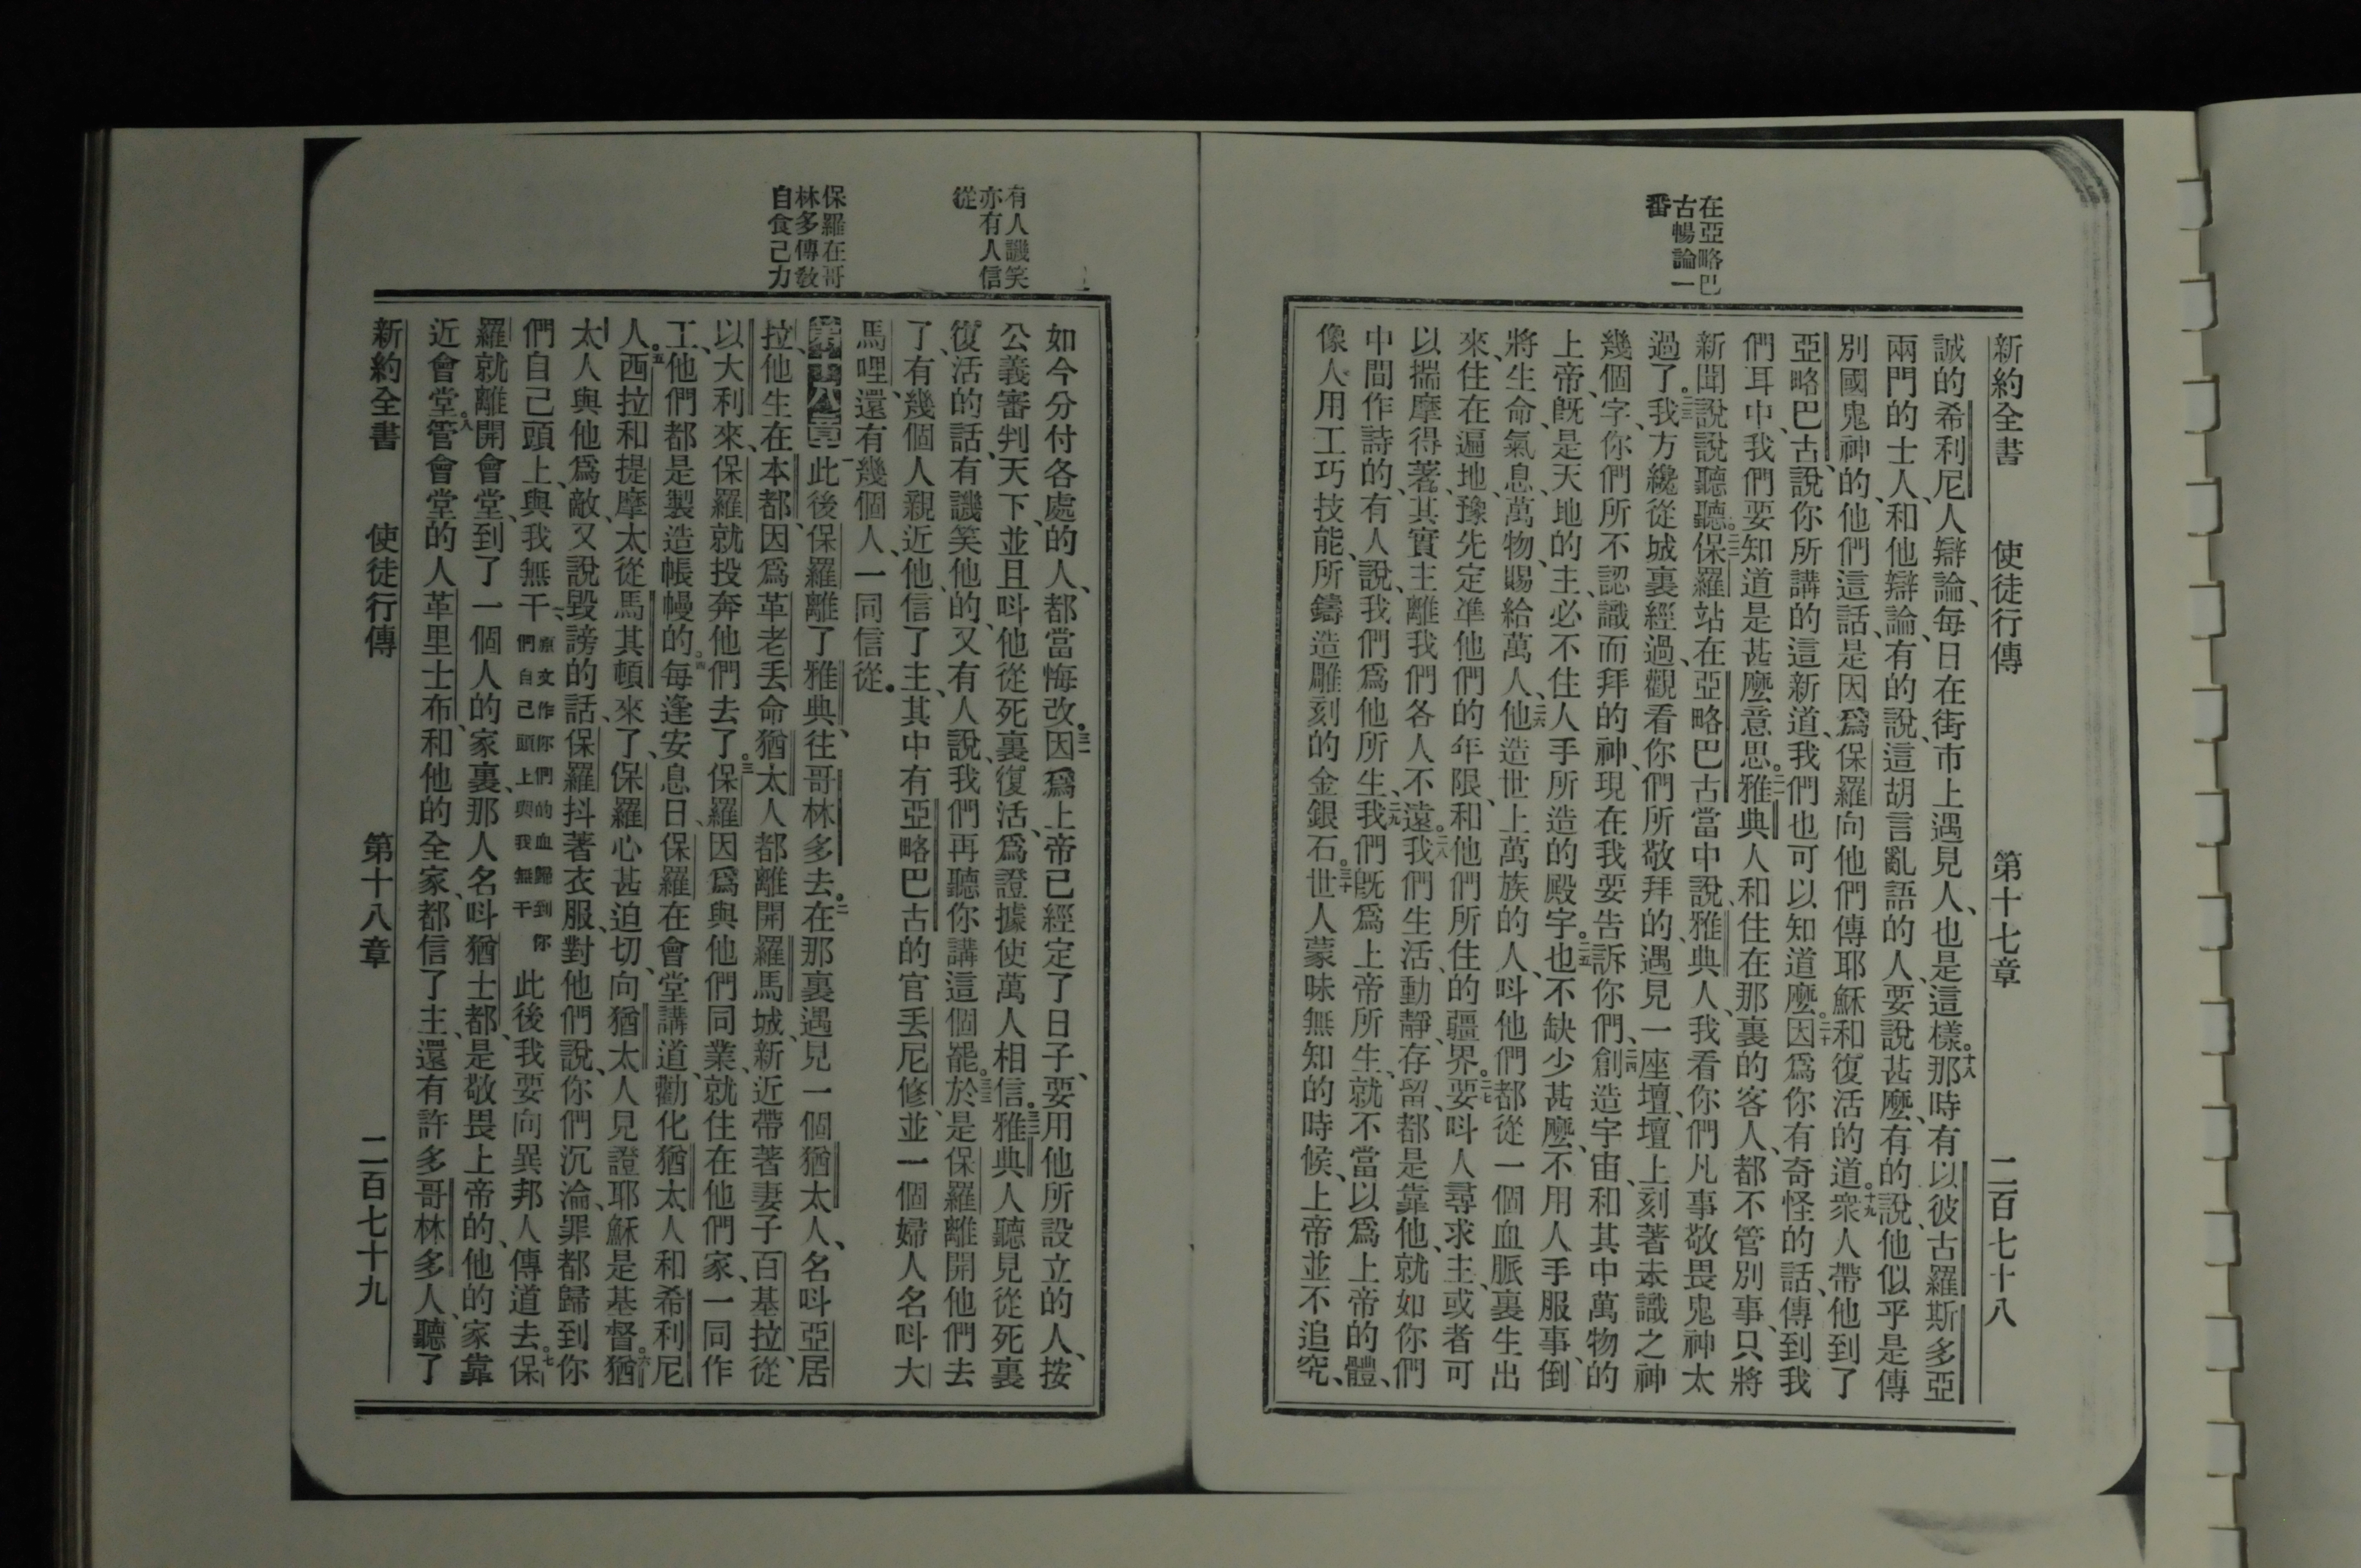 新約全書　使徒行傳　第十七章　二百七十八
在亞略巴
古暢論一
番
誠的希利尼人辯論、每日在街市上遇見人、也是這樣。十八那時有以彼古羅斯多亞
兩門的士人、和他辯論、有的說、這胡言亂語的人、要說甚麼、有的說、他似乎是傳
別國鬼神的、他們這話、是因爲保羅向他們傳耶穌和復活的道。十九衆人帶他到了
亞略巴古、說、你所講的這新道、我們也可以知道麼。二十因爲你有奇怪的話、傳到我
們耳中、我們要知道是甚麼意思。二一雅典人和住在那裏的客人、都不管別事、只將
新聞說說聽聽。二二保羅站在亞略巴古當中說、雅典人、我看你們凡事敬畏鬼神太
過了。二三我方纔從城裏經過、觀看你們所敬拜的、遇見一座壇、壇上刻著未識之神
幾個字、你們所不認識而拜的神、現在我要告訴你們、二四創造宇宙、和其中萬物的
上帝、旣是天地的主、必不住人手所造的殿宇。二五也不缺少甚麼、不用人手服事、倒
將生命、氣息、萬物、賜給萬人、二六他造世上萬族的人、呌他們都從一個血脈裏生出
來、住在遍地、豫先定準他們的年限、和他們所住的疆界。二七要呌人尋求主、或者可
以揣摩得著、其實主離我們各人不遠。二八我們生活、動靜、存留、都是靠他、就如你們
中間作詩的、有人說、我們爲他所生、二九我們旣爲上帝所生、就不當以爲上帝的體、
像人用工巧技能、所鑄造雕刻的金銀石。三十世人蒙昧無知的時候、上帝並不追究、
有人譏笑
亦有人信
從
保羅在哥
林多傳敎
自食己力
如今分付各處的人、都當悔改。三一因爲上帝已經定了日子、要用他所設立的人、按
公義審判天下、並且呌他從死裏復活、爲證據使萬人相信。三二雅典人聽見從死裏
復活的話、有譏笑他的、又有人說、我們再聽你講這個罷。三三於是保羅離開他們去
了、有幾個人親近他、信了主、其中有亞略巴古的官丟尼修、並一個婦人名呌大
馬哩、還有幾個人、一同信從。
第十八章一此後保羅離了雅典、往哥林多去。二在那裏遇見一個猶太人、名呌亞居
拉、他生在本都、因爲革老丟命猶太人都離開羅馬城、新近帶著妻子百基拉、從
以大利來、保羅就投奔他們去了。三保羅因爲與他們同業、就住在他們家、一同作
工、他們都是製造帳幔的。四每逢安息日、保羅在會堂講道、勸化猶太人和希利尼
人。五西拉和提摩太從馬其頓來了、保羅心甚迫切、向猶太人見證耶穌是基督。六猶
太人與他爲敵、又說毀謗的話、保羅抖著衣服、對他們說、你們沉淪、罪都歸到你
們自己頭上、與我無干、原文作你們的血歸到你們自己頭上與我無干此後我要向異邦人傳道去。七保
羅就離開會堂、到了一個人的家裏、那人名呌猶士都、是敬畏上帝的、他的家靠
近會堂。八管會堂的人革里士布、和他的全家、都信了主、還有許多哥林多人、聽了
新約全書　使徒行傳　第十八章　二百七十九